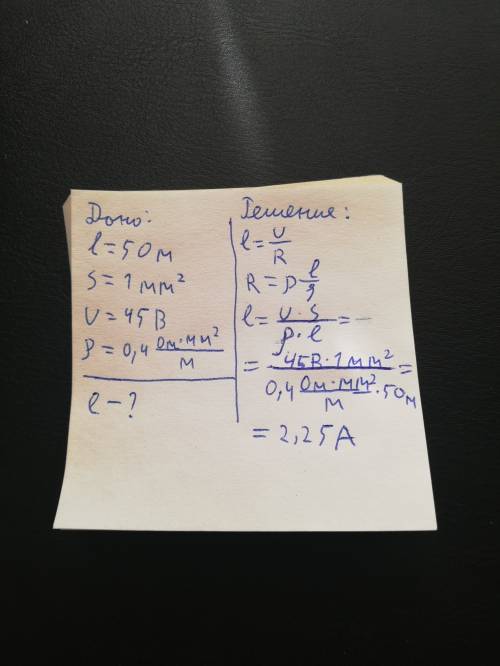 Дано:
l = 50 м
S = 1 мм²
U = 45 В
ρ = 0,4 Ом·мм²/м
l - ?
Решение:
l = U/R
R = ρ l/S
l = U·S/ρ·l =
= 45В·1мм²/0,4 Ом·мм²/м·50м =
= 2,25А